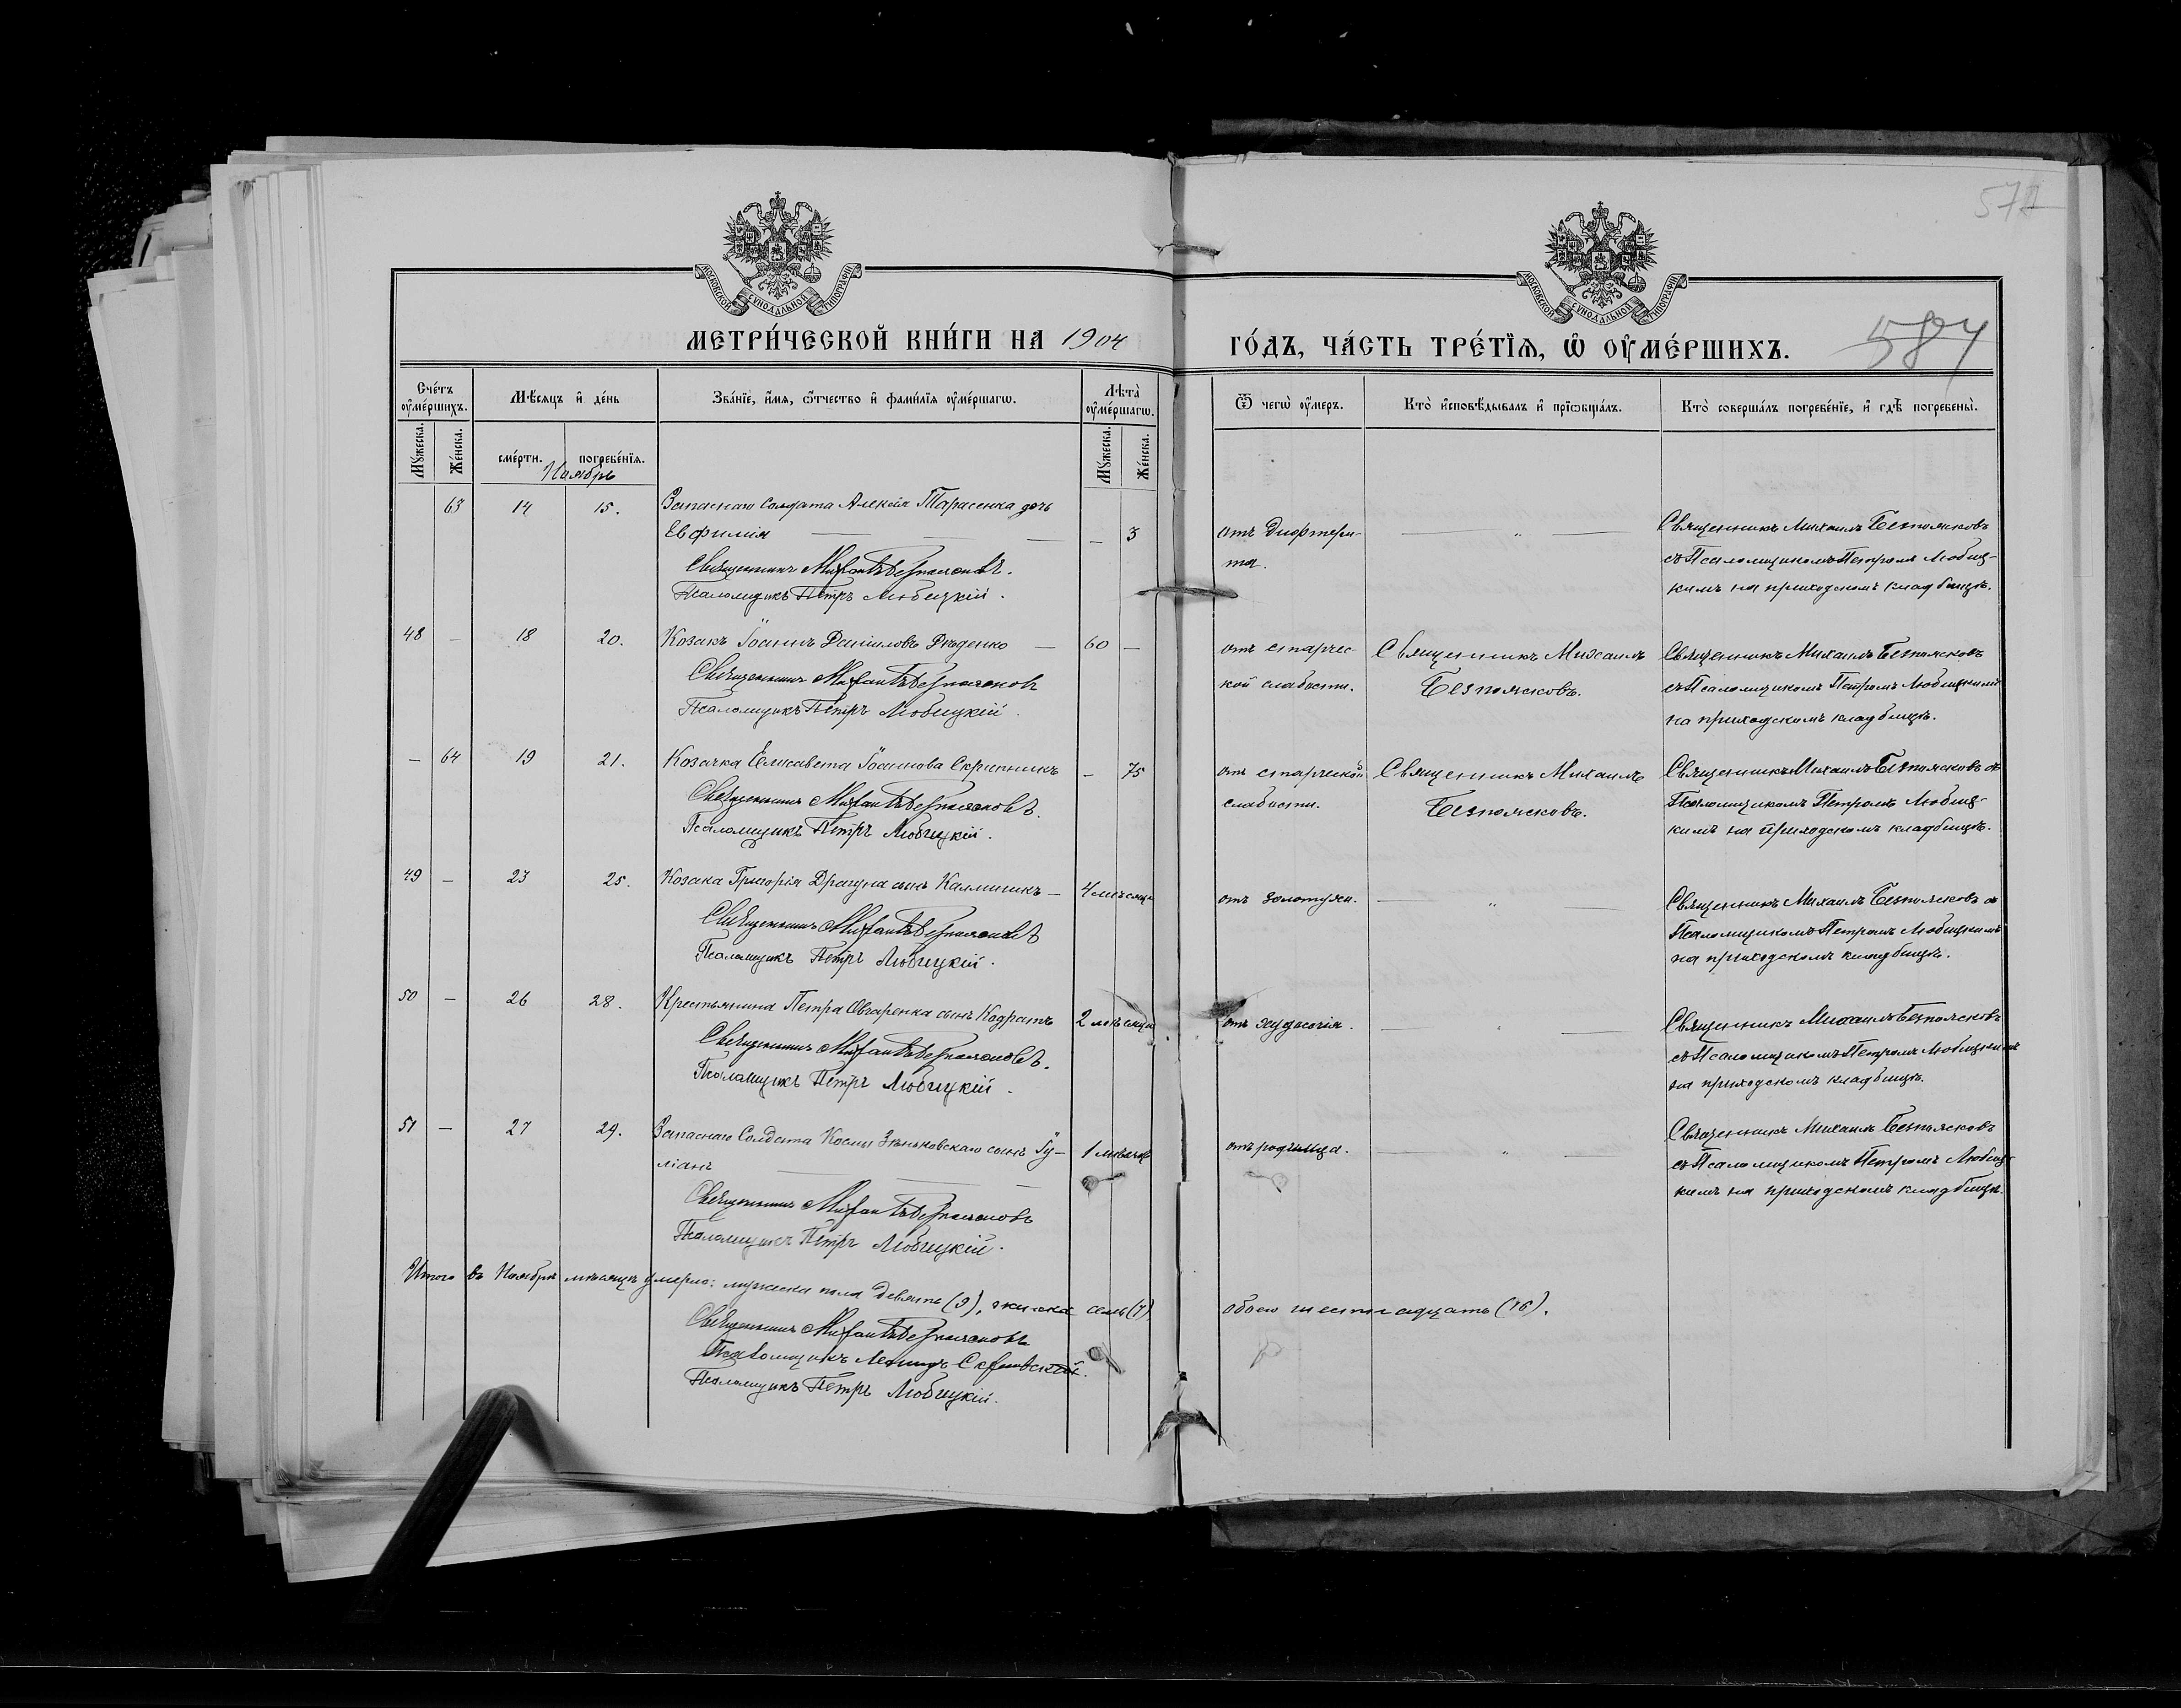 571
МОСКОВСКОЙ СѴНОДАЛЬНОЙ ТИПОГРАФІИ
МОСКОВСКОЙ СѴНОДАЛЬНОЙ ТИПОГРАФІИ
МЕТРИ́ЧЕСКОЙ КНИ́ГИ НА 1904
ГО́ДЪ, ЧА́СТЬ ТРЕ́ТЇѦ, Ѡ҆ ОУ҆МЕ́РШИХЪ.
584
Сче́тъ оу҆ме́ршихъ.
Мѣ́сѧцъ и҆ де́нь
Зва́нїе, и҆́мѧ, ѻ҆́тчество и҆ фами́лїѧ оу҆ме́ршагѡ.
Лѣ́та оу҆ме́ршагѡ.
Ѿ чегѡ̀ оу҆́меръ.
Кто̀ и҆сповѣ́дывалъ и҆ прїѡбща́лъ.
Кто̀ соверша́лъ погребе́нїе, и҆ гдѣ̀ погребены̀.
Мꙋ́жеска.
Же́нска.
сме́рти.
погребе́нїѧ.
Мꙋ́жеска.
Же́нска.
Ноябрь
63 14 15. Запаснаго солдата Алексѣя Тарасенка дочь
Евфимія — 3
Священникъ Михаилъ Безпоясковъ.
Псаломщикъ Петръ Любицкій.
отъ дифтери-
та.
Священникъ Михаилъ Безпоясковъ
съ Псаломщикомъ Петромъ Любиц-
кимъ на приходскомъ кладбищѣ.
48 — 18 20. Козакъ Іоаннъ Даніиловъ Дѣденко — 60 —
Священникъ Михаилъ Безпоясковъ
Псаломщикъ Петръ Любицкій.
отъ старчес-
кой слабости.
Священникъ Михаилъ
Безпоясковъ.
Священникъ Михаилъ Безпоясковъ
съ Псаломщикомъ Петромъ Любицкимъ
на приходскомъ кладбищѣ.
— 64 19 21. Козачка Елисавета Іоаннова Скрипникъ — 75
Священникъ Михаилъ Безпоясковъ.
Псаломщикъ Петръ Любицкій.
отъ старческой
слабости.
Священникъ Михаилъ
Безпоясковъ.
Священникъ Михаилъ Безпоясковъ съ
Псаломщикомъ Петромъ Любиц-
кимъ на приходскомъ кладбищѣ.
49 — 23 25. Козака Григорія Драгуна сынъ Каллиникъ — 4 мѣсяца
Священникъ Михаилъ Безпоясковъ
Псаломщикъ Петръ Любицкій.
отъ золотухи.
Священникъ Михаилъ Безпоясковъ съ
Псаломщикомъ Петромъ Любицкимъ
на приходскомъ кладбищѣ.
50 — 26 28. Крестьянина Петра Овчаренка сынъ Кодратъ 2 мѣсяца
Священникъ Михаилъ Безпоясковъ.
Псаломщикъ Петръ Любицкій.
отъ худосочія.
Священникъ Михаилъ Безпоясковъ
съ Псаломщикомъ Петромъ Любицкимъ
на приходскомъ кладбищѣ.
51 — 27 29. Запаснаго Солдата Космы Зѣньковскаго сынъ Іу-
ліанъ 1 мѣсяцъ
Священникъ Михаилъ Безпоясковъ
Псаломщикъ Петръ Любицкій.
отъ родимца.
Священникъ Михаилъ Безпоясковъ
съ Псаломщикомъ Петромъ Любиц-
кимъ на приходскомъ кладбищѣ.
Итого въ Ноябрѣ мѣсяцѣ умерло: мужеска пола девять (9), женска семь (7),
обоего шестнадцать (16).
Священникъ Михаилъ Безпоясковъ
Псаломщикъ Леонидъ
Псаломщикъ Петръ Любицкій.